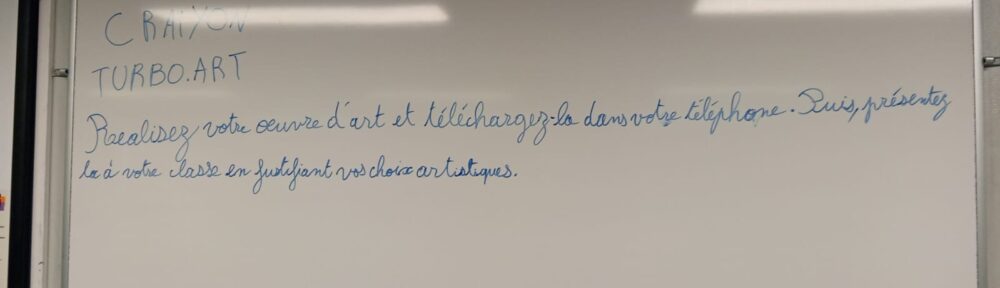 CRAIYON
TURBO.ART
Realisez votre œuvre d'art et téléchargez-la dans votre téléphone. Puis, présentez
la à votre classe en justifiant vos choix artistiques.